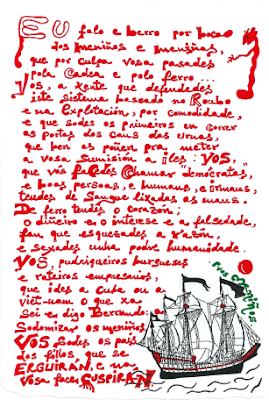 EU falo e berro por boca
dos meniños e meniñas,
que por culpa vosa pasades
pola Cadea e polo ferro...
Vos, a xente que defendedes
iste sistema baseado no Roubo
e na Explotación, por comodidade,
e que sodes os primeiros en correr
as portas dos Caus das Urnas,
que ben as poñen pra meter
a vosa sumisión a iles: VOS,
que vós facedes Chamar "demócratas,
e boas persoas, e humans, e irmaus,
tendes de Sangue lixadas as maus.
De ferro tendes o Corazón;
o diñeiro e o interese e a falsedade,
fan que esquezades a razón,
e sexades unha podre humanidade.
VOS, pudrigueiros burgueses
e rateiros empresarios,
que ides a Cuba ou a
Viet-nam o que xa
sei e digo Berrando: a
Sodomizar os meniños,
VOS sodes os pais
dos fillos, que se
ERGUIRÁN, e na
Vosa face CUSPIRÁN
pros meniños